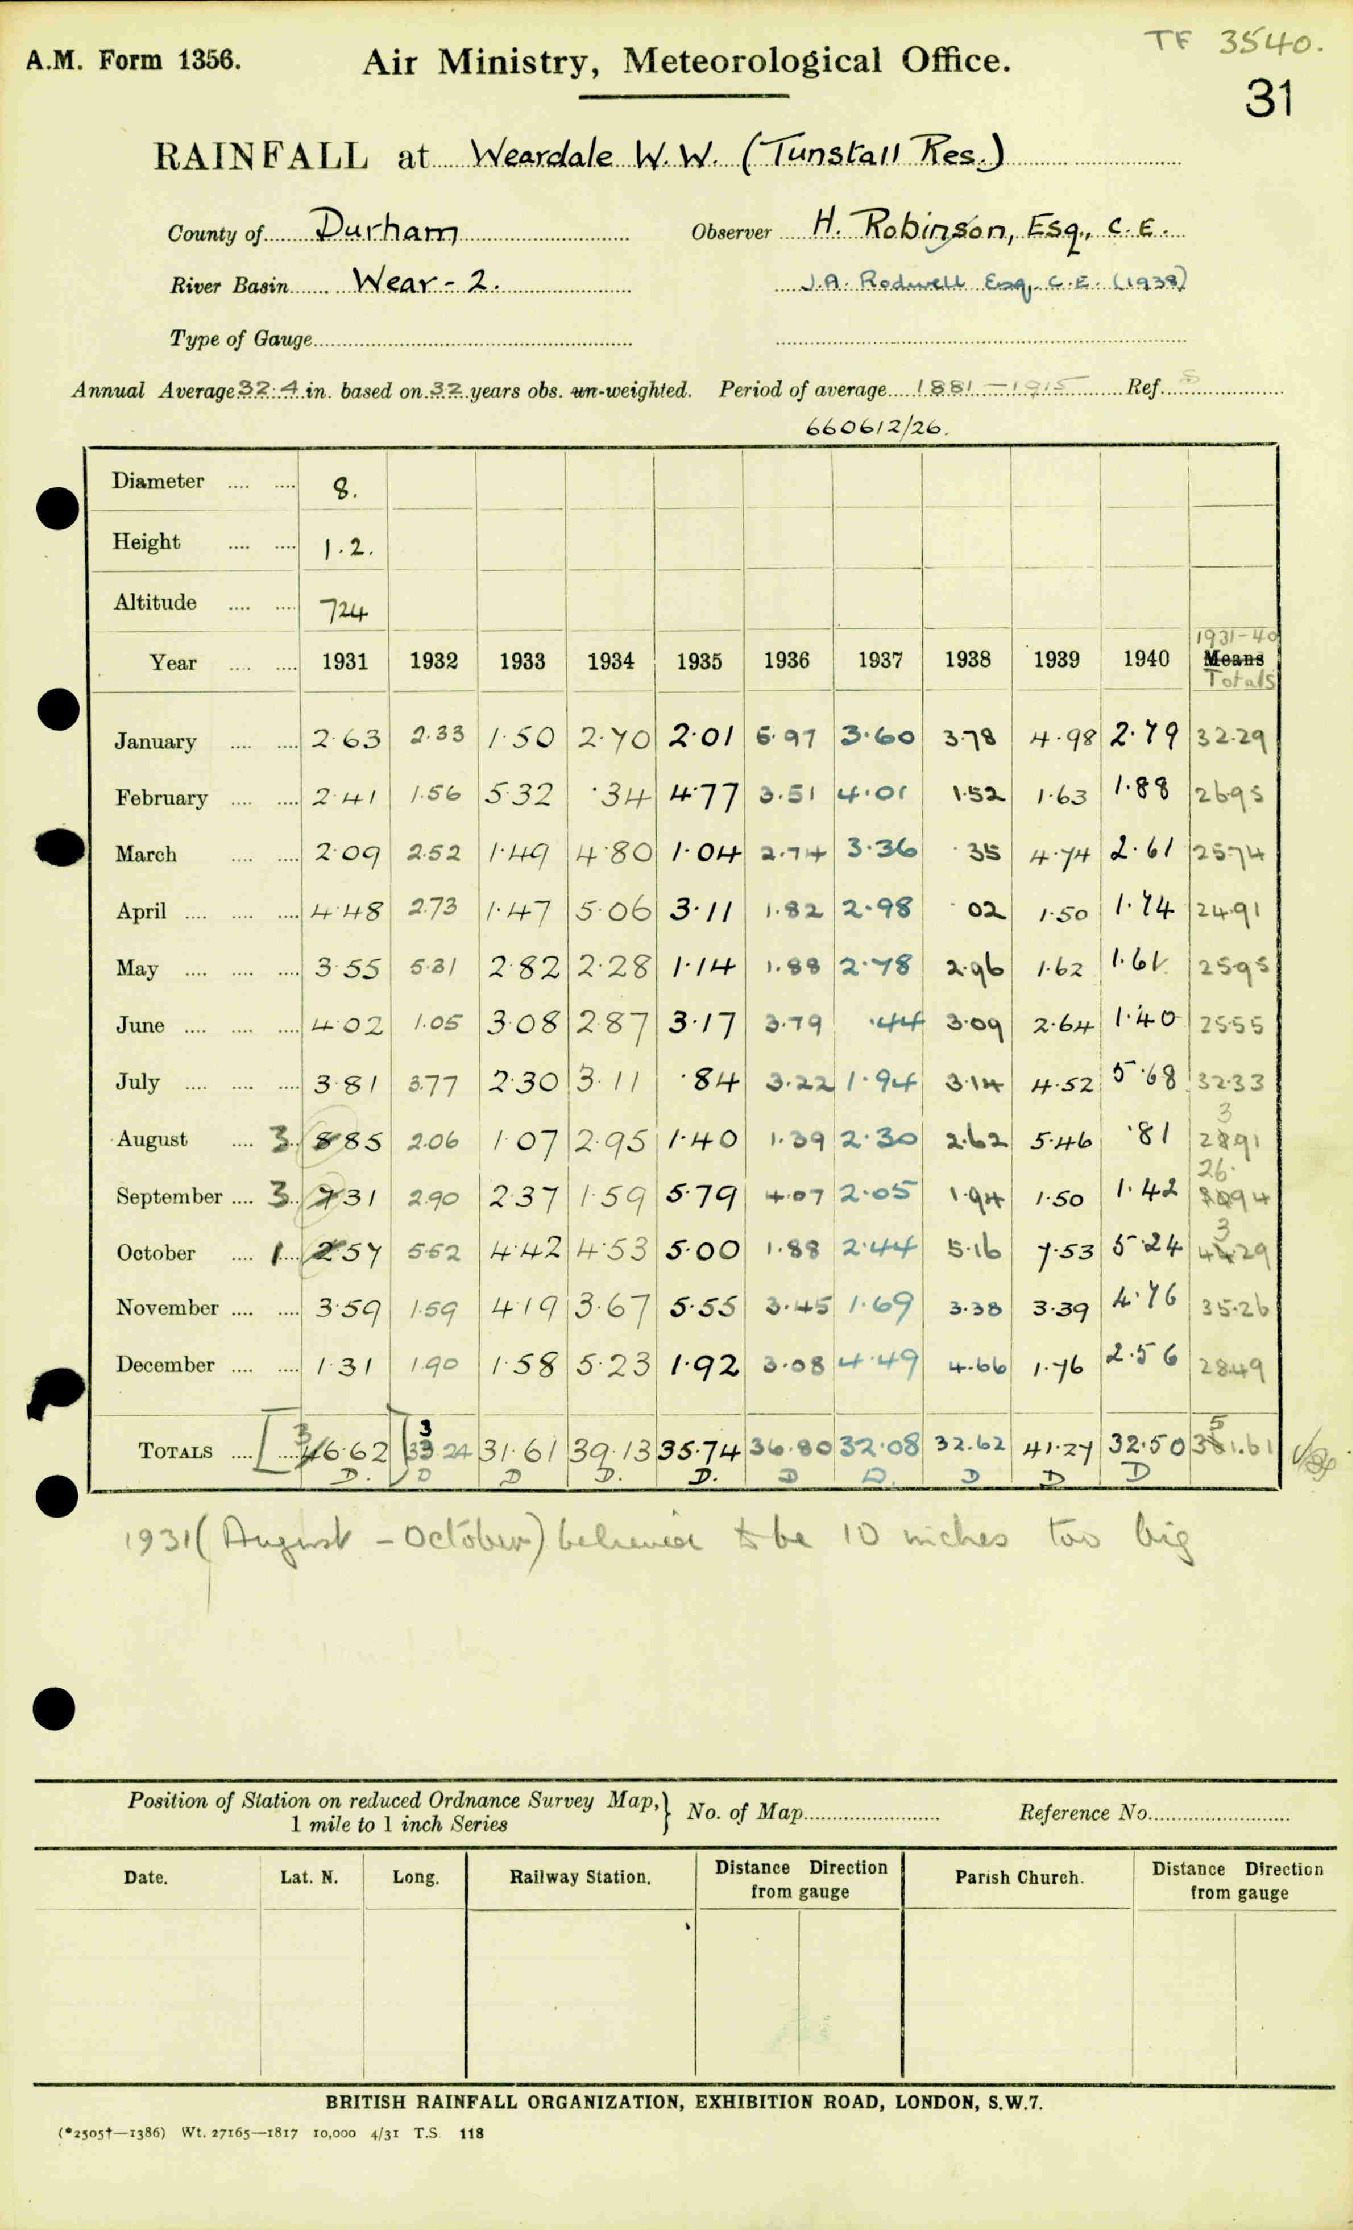 TF 3540.
A.M. Form 1356. Air Ministry, Meteorological Office.
31
RAINFALL at Weardale W.W. (Tunstall Res.)
County of Durham Observer H. Robinson, Esq., C.E.
River Basin Wear - 2. J.A. Rodwell Esq, C.E. (1938)
Type of Gauge
Annual Average 32.4 in. based on 32 years obs. un-weighted. Period of average 1881-1915 Ref. S
660612/26.
Diameter 8.
Height 1.2.
Altitude 724
1931-40
Year 1931 1932 1933 1934 1935 1936 1937 1938 1939 1940 Means
Totals
January 2.63 2.33 1.50 2.70 2.01 5.97 3.60 3.78 4.98 2.79 32.29
February 2.41 1.56 5.32 .34 4.77 3.51 4.01 1.52 1.63 1.88 26.95
March 2.09 2.52 1.49 4.80 1.04 2.74 3.36 .35 4.74 2.61 25.74
April 4.48 2.73 1.47 5.06 3.11 1.82 2.98 02 1.50 1.74 24.91
May 3.55 5.31 2.82 2.28 1.14 1.88 2.78 2.96 1.62 1.61 25.95
June 4.02 1.05 3.08 2.87 3.17 3.79 .44 3.09 2.64 1.40 25.55
July 3.81 3.77 2.30 3.11 .84 3.22 1.94 3.14 4.52 5.68 32.33
3
August 3 885 2.06 1.07 2.95 1.40 1.39 2.30 2.62 5.46 .81 2891
26.
September 3 731 2.90 2.37 1.59 5.79 4.07 2.05 1.94 1.50 1.42 3094
3
October 1 257 5.52 4.42 4.53 5.00 1.88 2.44 5.16 7.53 5.24 4429
November 3.59 1.59 4.19 3.67 5.55 3.45 1.69 3.38 3.39 4.76 35.26
December 1.31 1.90 1.58 5.23 1.92 3.08 4.49 4.66 1.76 2.56 28.49
3 3 5
TOTALS [46.62] 33.24 31.61 39.13 35.74 36.80 32.08 32.62 41.27 32.50 361.61
D. D D D. D. D D. D D D
1931 (August - October) believed to be 10 inches too big
Position of Station on reduced Ordnance Survey Map,} No. of Map Reference No.
1 mile to 1 inch Series
Date. Lat. N. Long. Railway Station. Distance Direction from gauge Parish Church. Distance Direction from gauge
BRITISH RAINFALL ORGANIZATION, EXHIBITION ROAD, LONDON, S.W.7.
(*2505†—1386) Wt. 27165—1817 10,000 4/31 T.S. 118